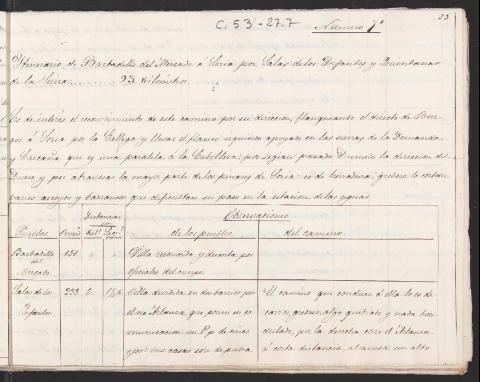 23
C. 53 - 27.7
Numero 7º
Itinerario de Barbadillo del Mercado á Soria por Salas de los Ynfantes y Quintanar
de la Sierra ........ 93 Kilómetros.
Es de interés el reconocimiento de este camino por su direccion, flanqueando el directo de Bur-
gos á Soria por la Gallega; y llevar el flanco izquierdo apoyado en las sierras de la Demanda
y que es una paralela á la Cebollera; por seguir pasado Duruelo la direccion del
Duero y por atravesar la mayor parte de los pinares de Soria: es de herradura, y le cortan
varios arroyos y barrancos que dificultan su paso en la estacion de las aguas.
Distancias Observaciones
Pueblos Kilˢ de los pueblos del camino.
Barbadillo 151 " " Villa recorrida y descrita por
del oficiales del cuerpo
Mercado.
Salas de los 233 6 Villa dividida en dos barrios por El camino que conduce á ella es de
Ynfantes. el rio Arlanza que ponen en co- carros, algo quebrado y nada
municacion un P.p de por la derecha corre el Arlanza
sus casas son de piedra á corta distancia, atraviesa un alto